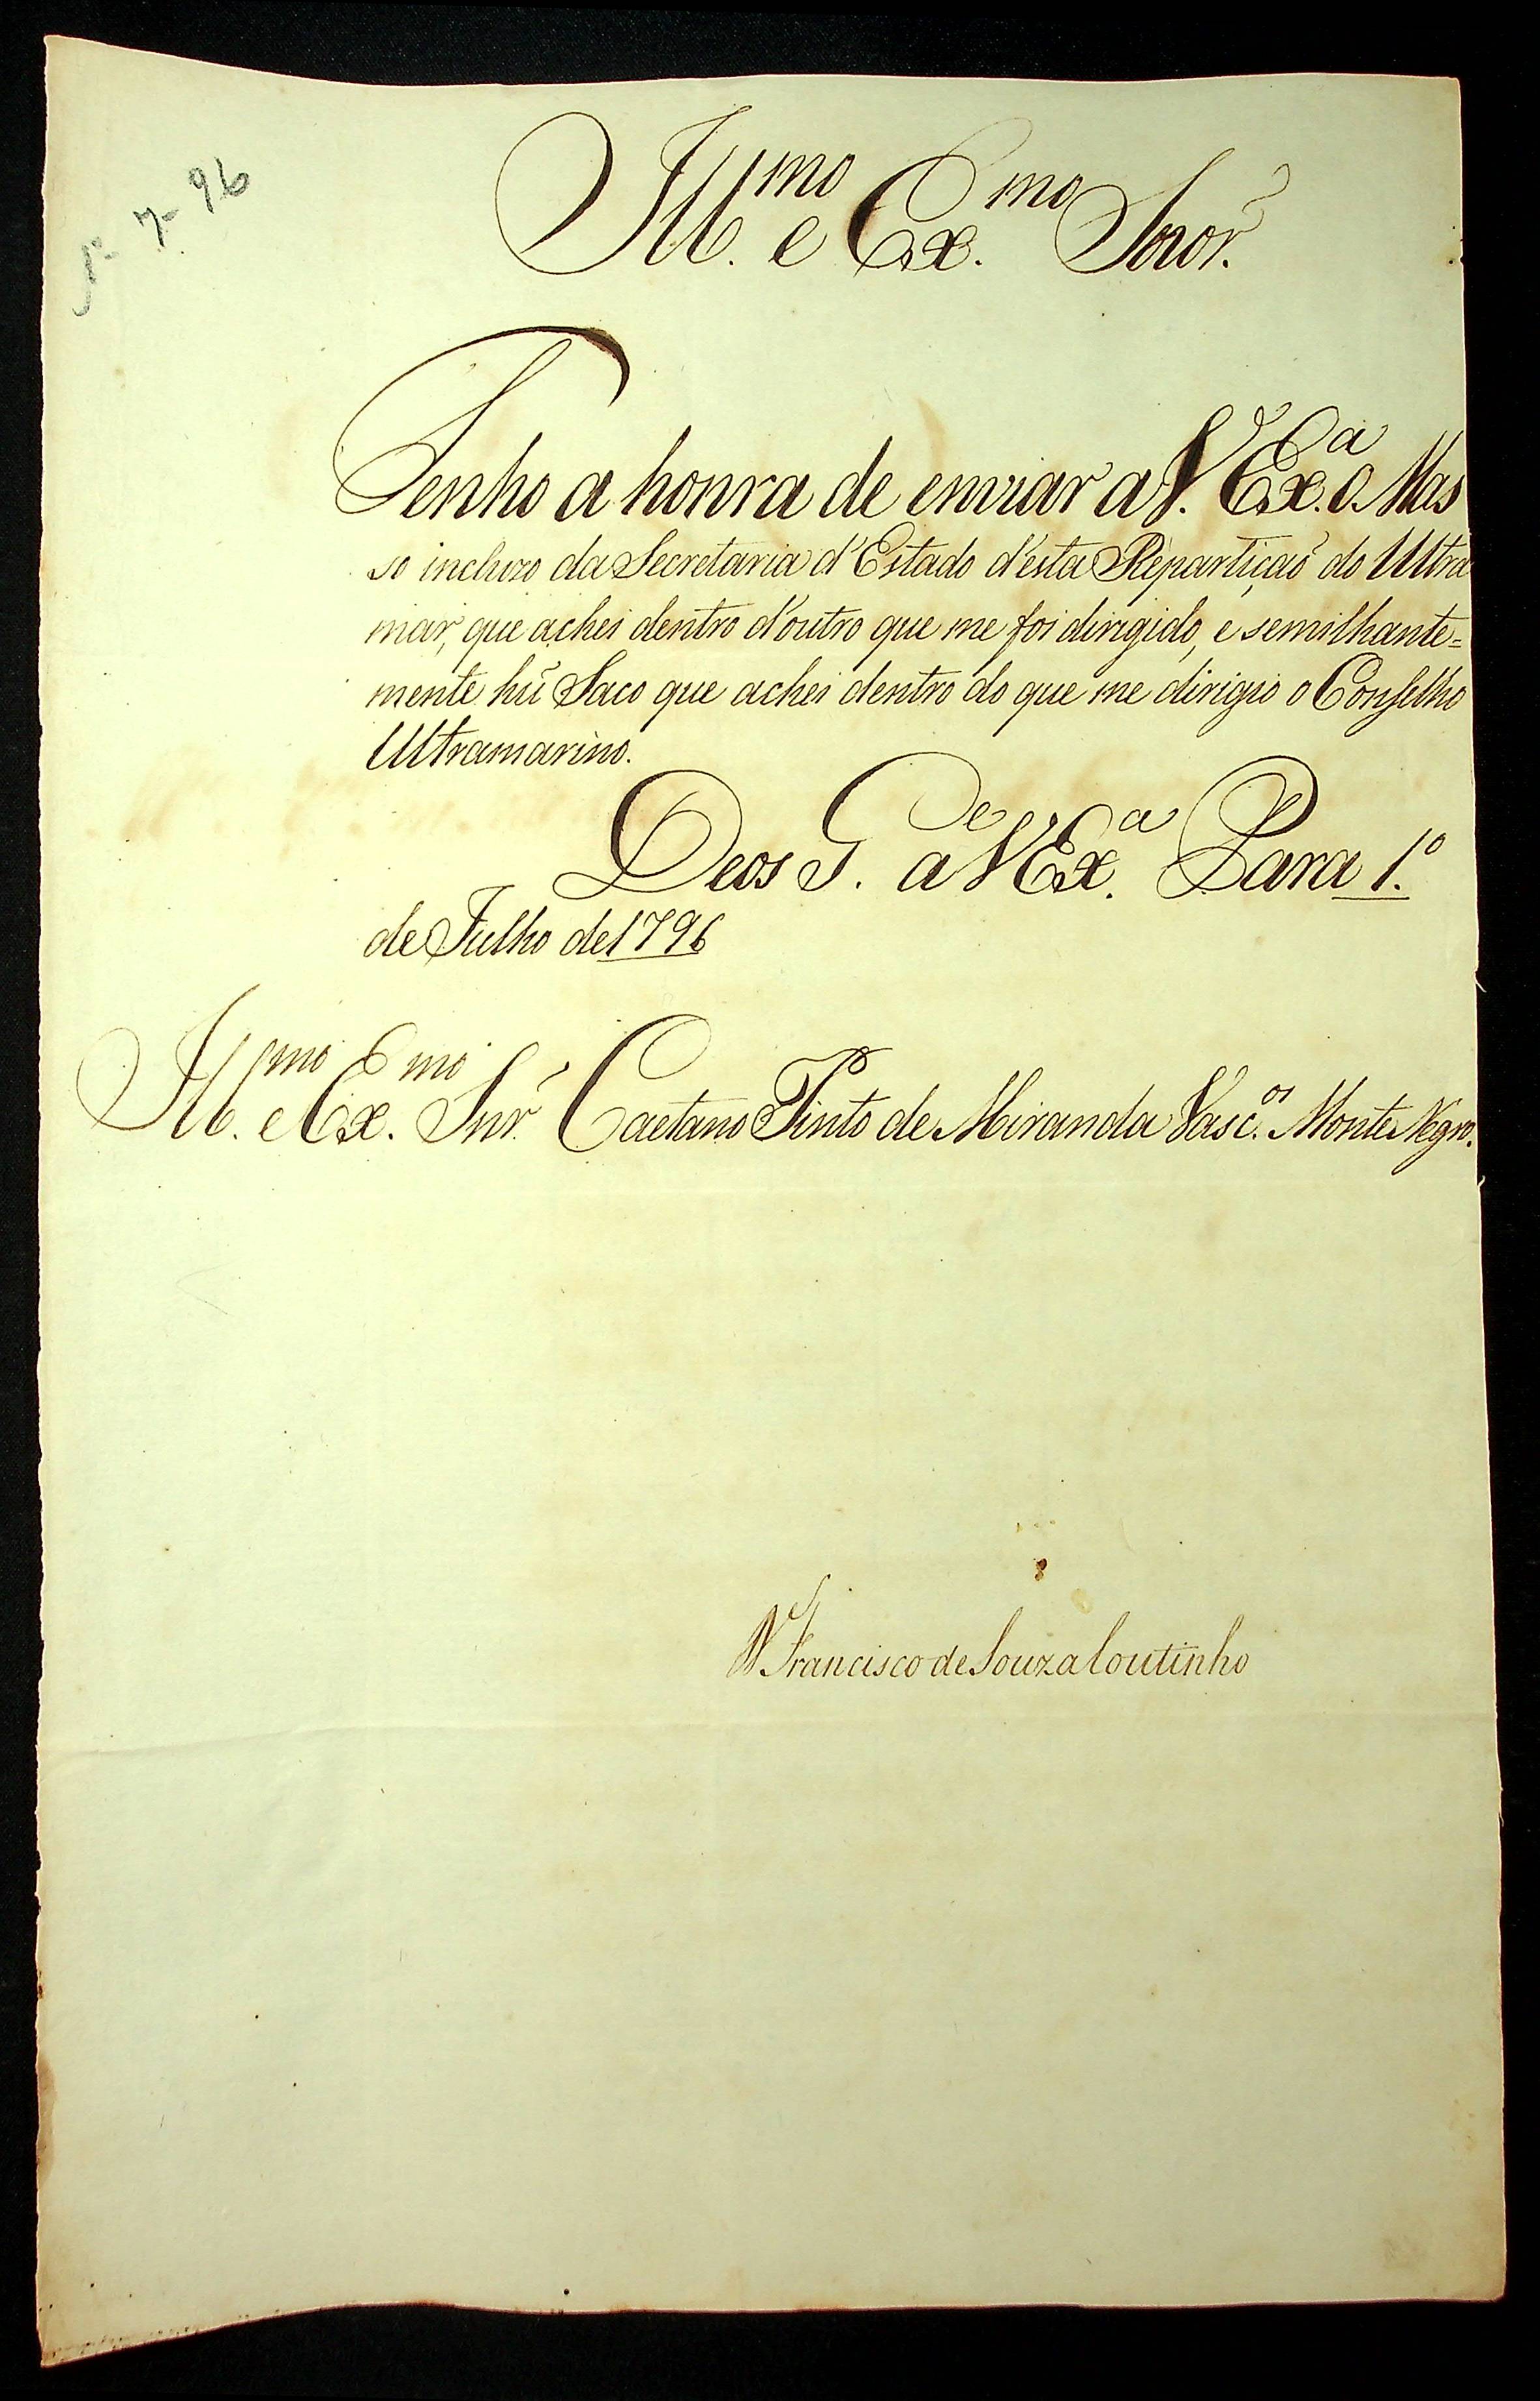 1º- 7- 96
Ill.mo e Ex.mo Snor.
Tenho a honra de enviar a V. Ex.a o Mas
so incluzo da Secretaria d'Estado d'esta Repartiçaõ do Ultra
mar, que achei dentro d'outro que me foi dirigido, e semilhante=
mente hũ Saco que achei dentro do que me dirigio o Conselho
Ultramarino.
Deos G.e a V Ex.a Pará 1.º
de Julho de 1796
Ill.mo e Ex.mo Snr. Caetano Pinto de Miranda Vasc.os Monte Negro.
D. Francisco de Souza Coutinho